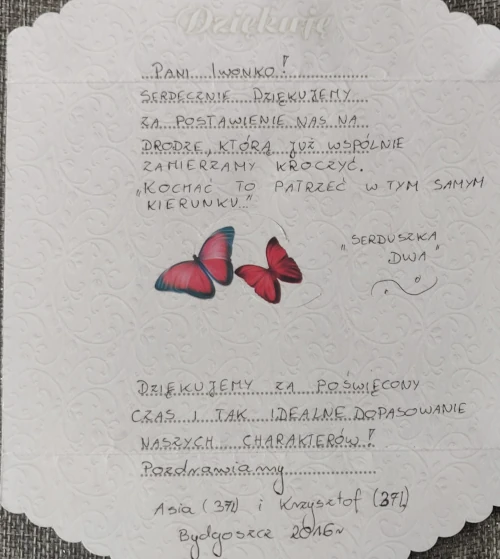 Dziękuję
PANI IWONKO!
SERDECZNIE DZIĘKUJEMY
ZA POSTAWIENIE NAS NA
DRODZE, KTÓRĄ JUŻ WSPÓLNIE
ZAMIERZAMY KROCZYĆ.
„KOCHAĆ TO PATRZEĆ W TYM SAMYM
KIERUNKU..."
„SERDUSZKA
DWA"
DZIĘKUJEMY ZA POŚWIĘCONY
CZAS I TAK IDEALNE DOPASOWANIE
NASZYCH CHARAKTERÓW!
Pozdrawiamy
Asia (37l) i Krzysztof (37l)
Bydgoszcz 2016r